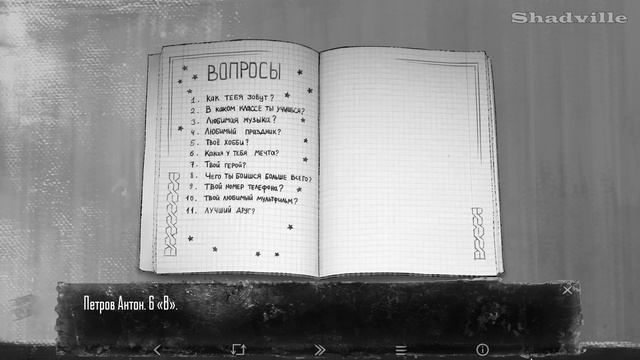 Shadville
ВОПРОСЫ
1. Как тебя зовут?
2. В каком классе ты учишься?
3. Любимая музыка?
4. Любимый праздник?
5. Твоё хобби?
6. Какая у тебя мечта?
7. Твой герой?
8. Чего ты боишся больше всего?
9. Твой номер телефона?
10. Твой любимый мультфильм?
11. Лучший друг?
Петров Антон. 6 «В».